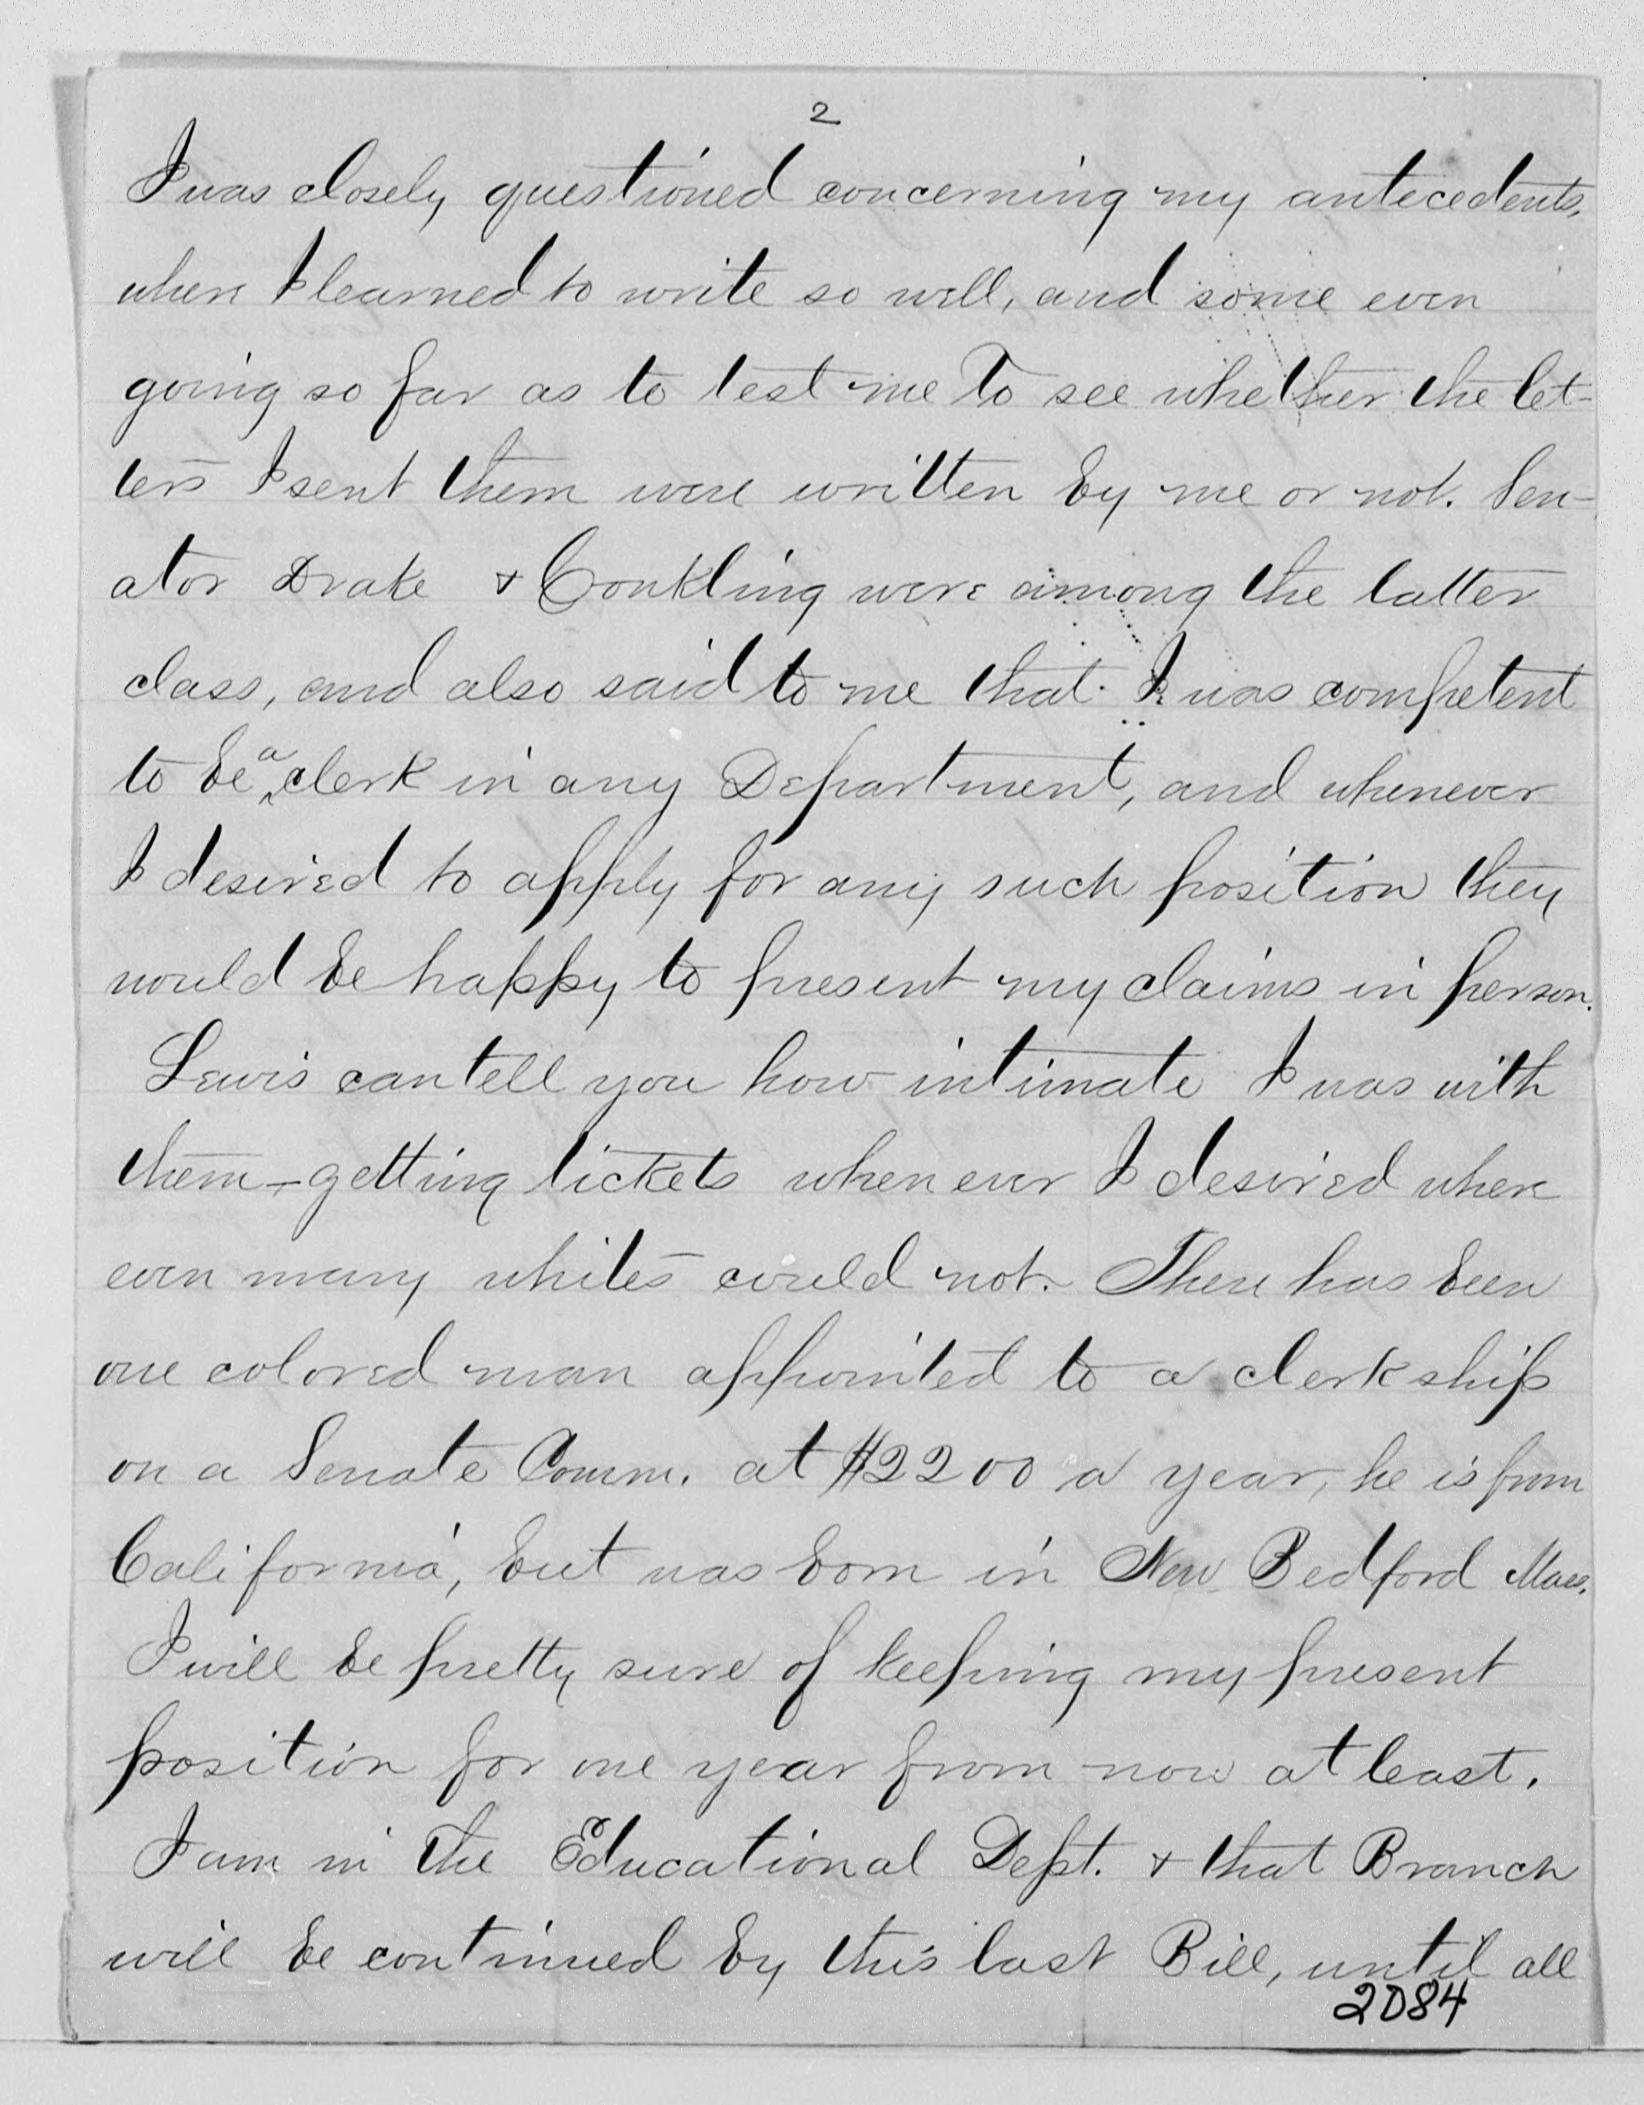 2
I was closely questioned concerning my antecedents,
where I learned to write so well, and some even
going so far as to test me to see whether the let-
ters I sent them were written by me or not. Sen-
ator Drake & Conkling were among the latter
class, and also said to me that I was competent
to be a clerk in any Department, and whenever
I desired to apply for any such position they
would be happy to present my claims in person.
Lewis can tell you how intimate I was with
them – getting tickets whenever I desired where
even many whites could not. There has been
one colored man appointed to a clerkship
on a Senate Comm. at $2200 a year, he is from
California, but was born in New Bedford Mass.
I will be pretty sure of keeping my present
position for one year from now at least.
I am in the Educational Dept. & that Branch
will be continued by this last Bill, until all
2084